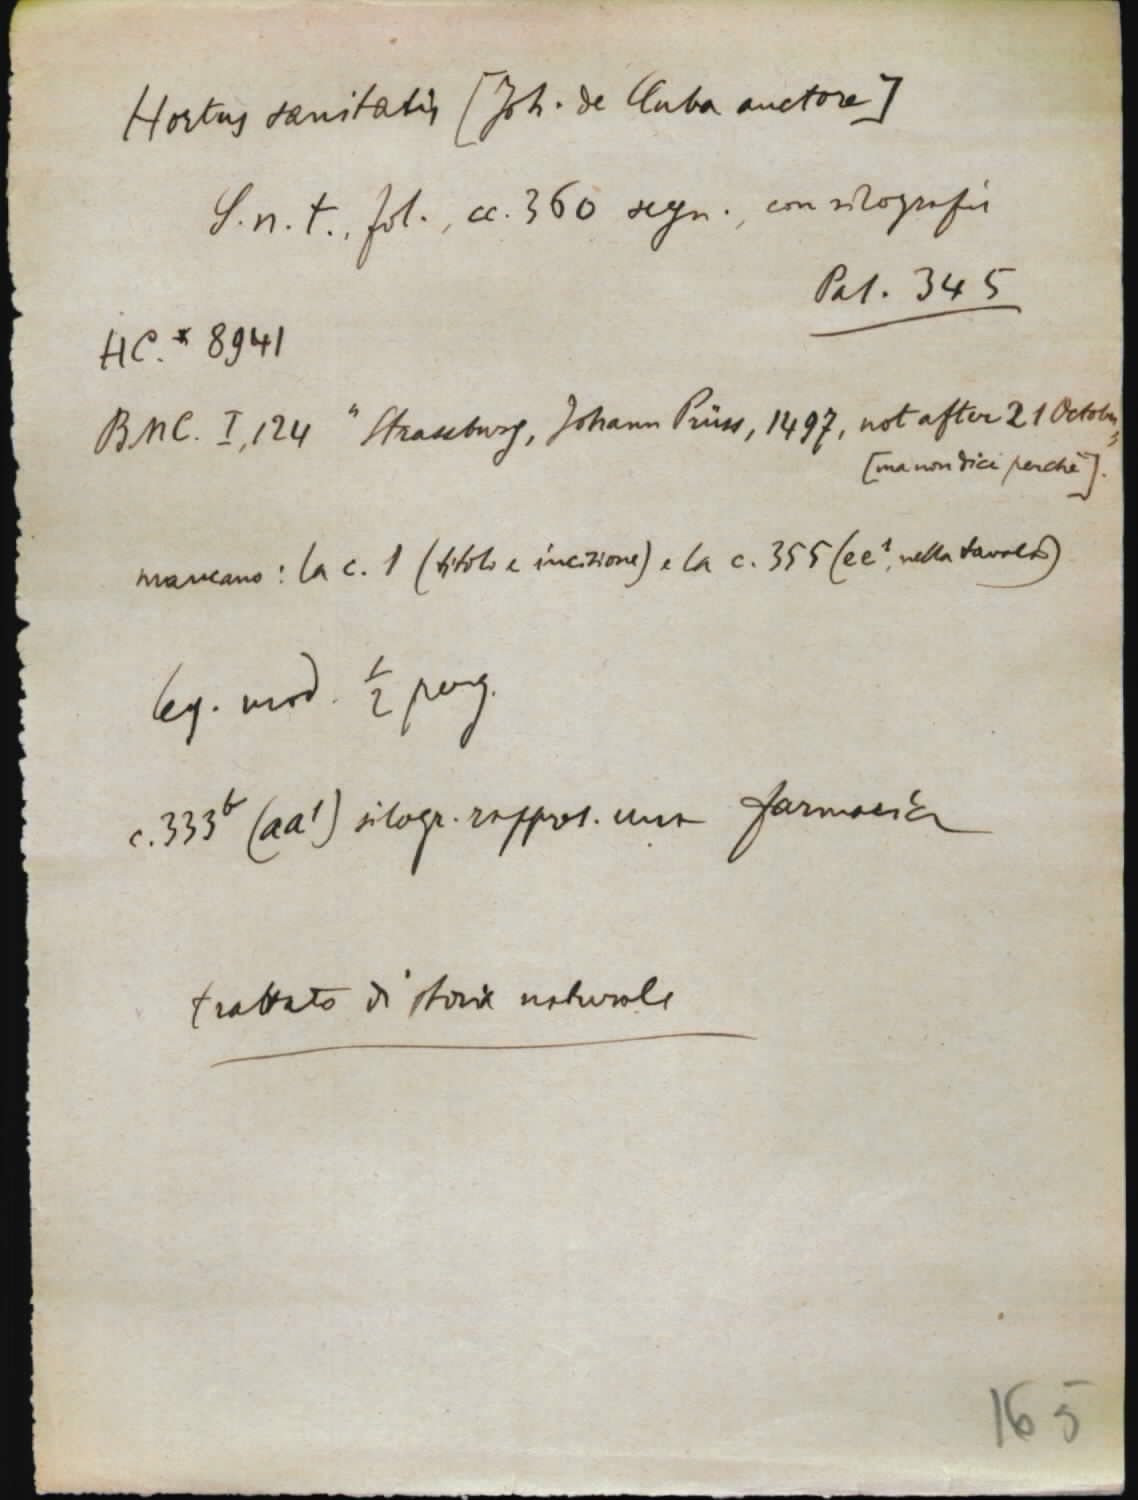 Hortus sanitatis [Joh. de Cuba auctore]
S.n.t., fol., cc. 360 segn., con silografie
Pal. 345
HC.* 8941
BMC. I, 124 "Strassburg, Johann Prüss, 1497, not after 21 October"
[ma non dice perché].
mancano: la c. 1 (titolo e incisione) e la c. 355 (ee¹, nella tavola)
leg. mod. ½ perg.
c. 333b (aa¹) silogr. rappres. una farmacia
trattato di storia naturale
165